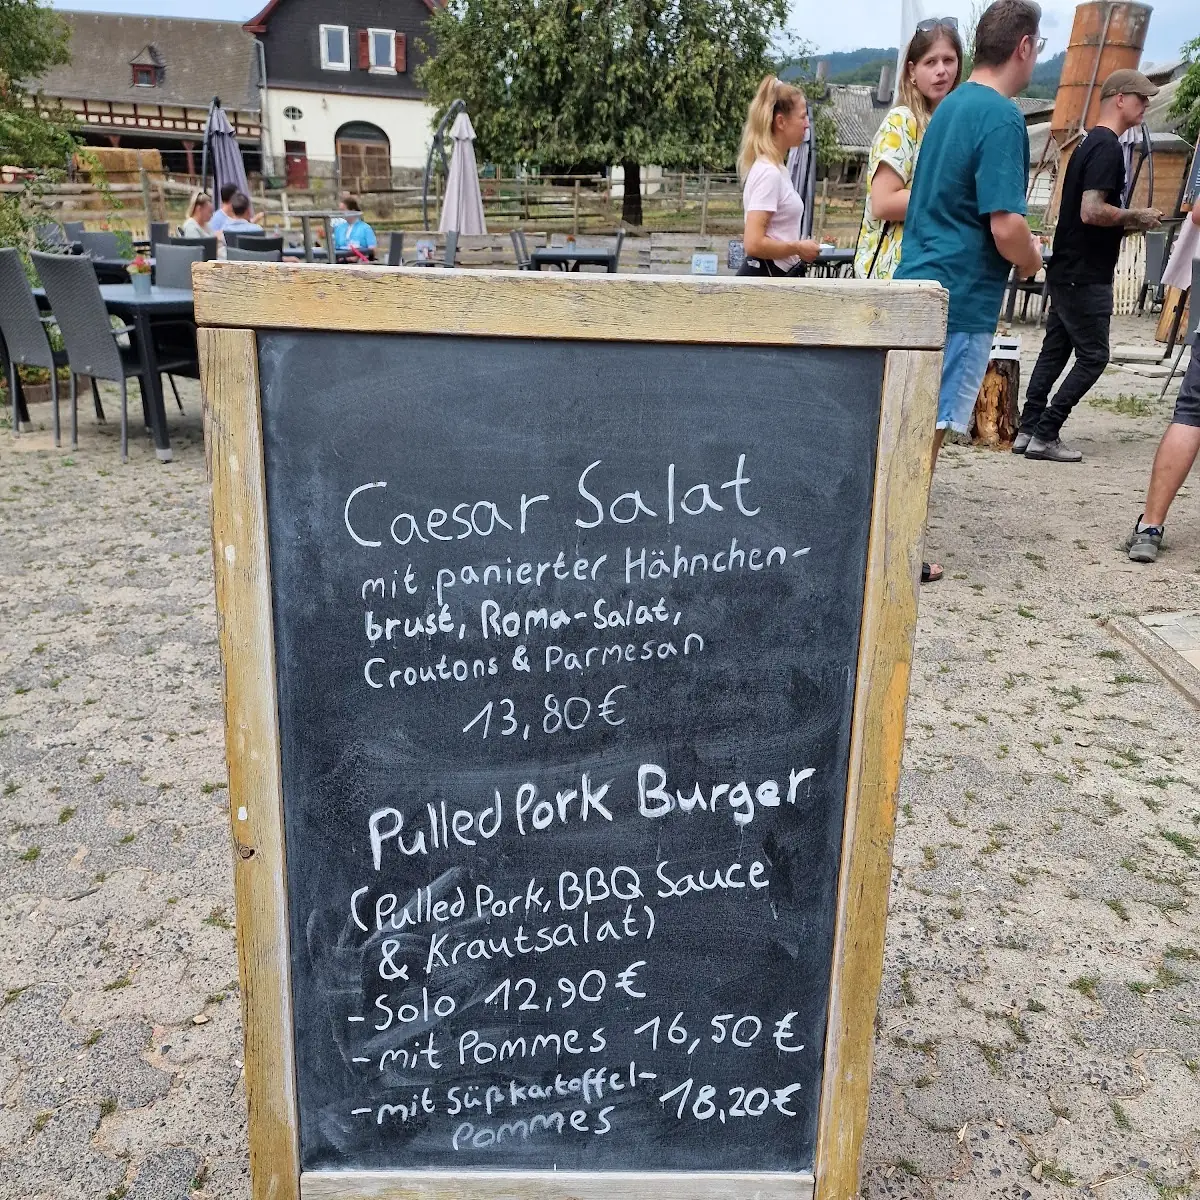 Caesar Salat
mit panierter Hähnchen-
brust, Roma-Salat,
Croutons & Parmesan
13,80€
Pulled Pork Burger
(Pulled Pork, BBQ Sauce
& Krautsalat)
- Solo 12,90€
- mit Pommes 16,50€
- mit Süßkartoffel- 18,20€
Pommes